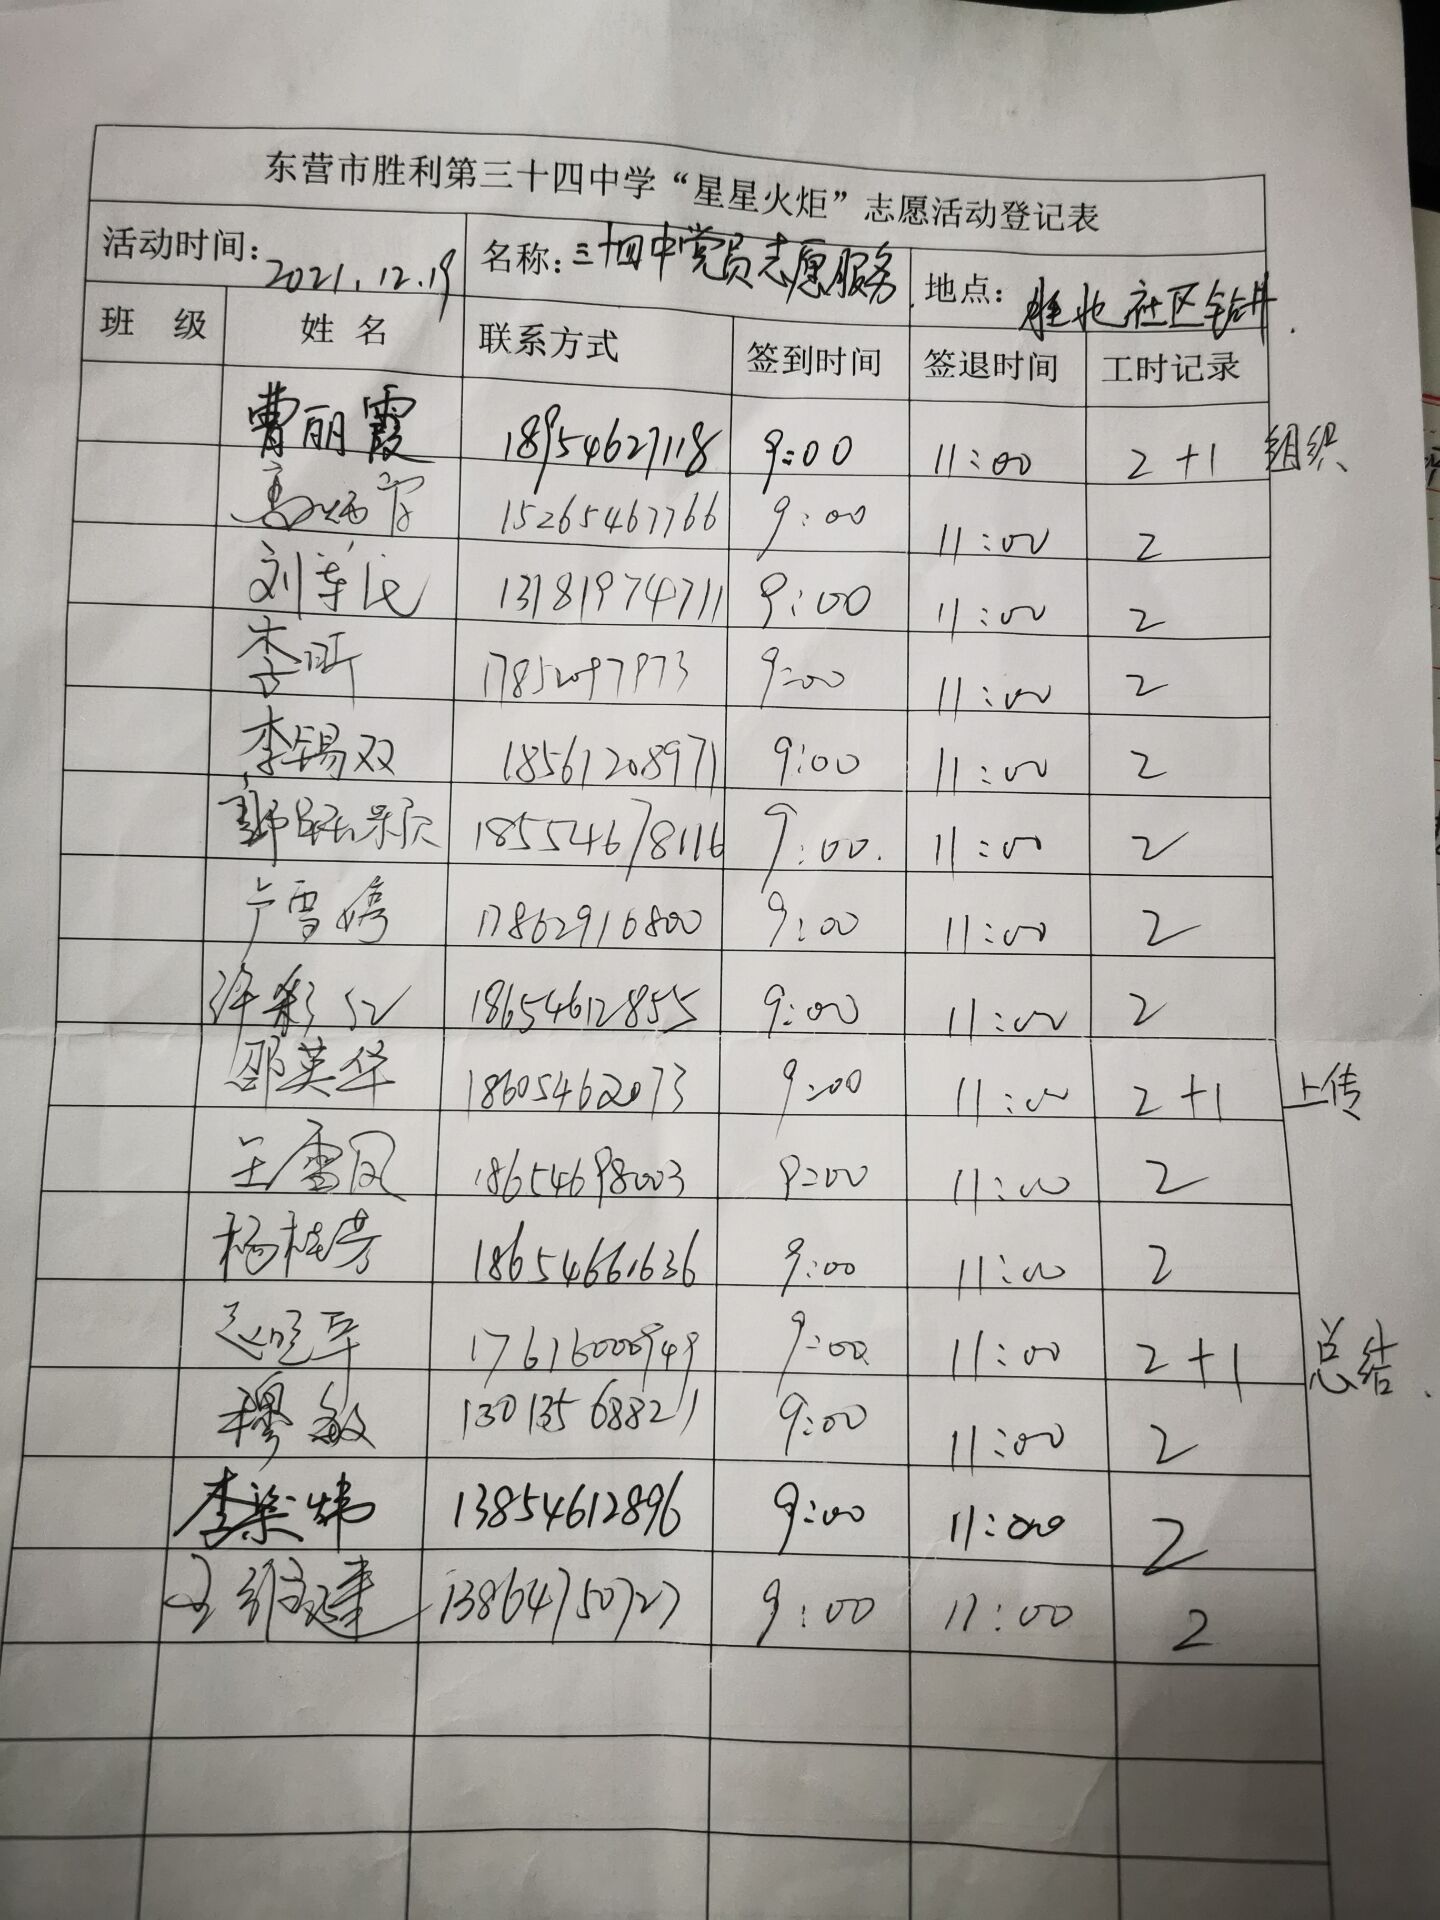 东营市胜利第三十四中学“星星火炬”志愿活动登记表
活动时间：2021.12.19 名称：三十四中党员志愿服务 地点：胜北社区钻井.
班 级 姓 名 联系方式 签到时间 签退时间 工时记录
曹丽霞 18954627118 9:00 11:00 2+1 组织
15265467766 9:00 11:00 2
13181974711 9:00 11:00 2
李昕 17852097973 9:00 11:00 2
李锡双 18561208971 9:00 11:00 2
18554678116 9:00. 11:00 2
卢雪婷 17862916800 9:00 11:00 2
许彩红 18654612855 9:00 11:00 2
邵英华 18605462073 9:00 11:00 2+1 上传
王雪凤 18654698003 9:00 11:00 2
杨桂芳 18654661636 9:00 11:00 2
17616000949 9:00 11:00 2+1 总结.
穆敏 13013568821 9:00 11:00 2
李梁炜 13854612896 9:00 11:00 2
王维建 13864750727 9:00 11:00 2